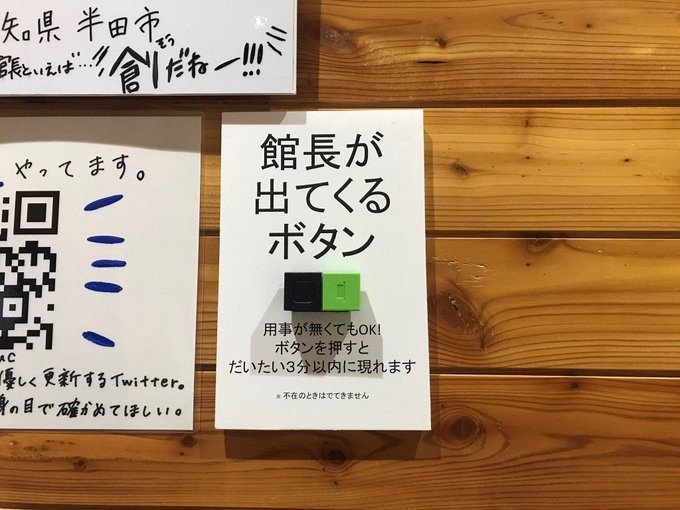 知県 半田市
館長といえば…
創だねー!!!
そう
やってます。
優しく更新するTwitter。
身の目で確かめてほしい。
館長が
出てくる
ボタン
用事が無くてもOK!
ボタンを押すと
だいたい3分以内に現れます
※ 不在のときはでてきません